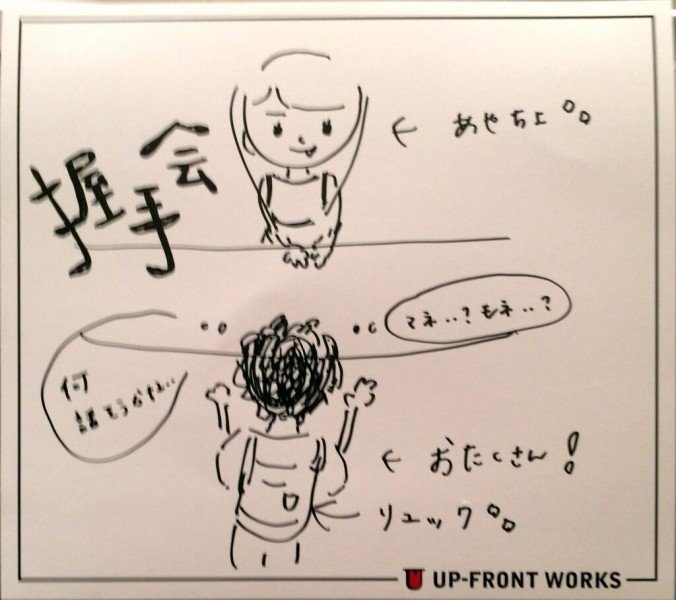 握手会
← あやちょ°°
マネ‥?モネ‥?
何
話そうかな…
← おたくさん!
← リュック°°
UP-FRONT WORKS